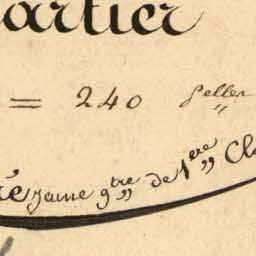 artier
= 240 Pelles
"
ré jaune 9tre de 1ere Cla